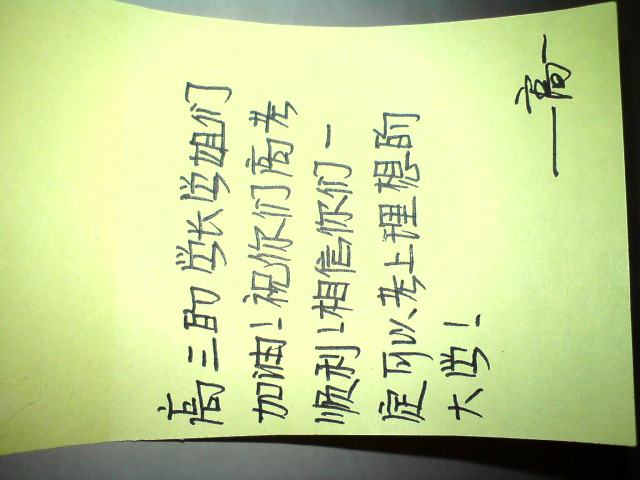 高三的学长学姐们
加油！祝你们高考
顺利！相信你们一
定可以考上理想的
大学！
——高一